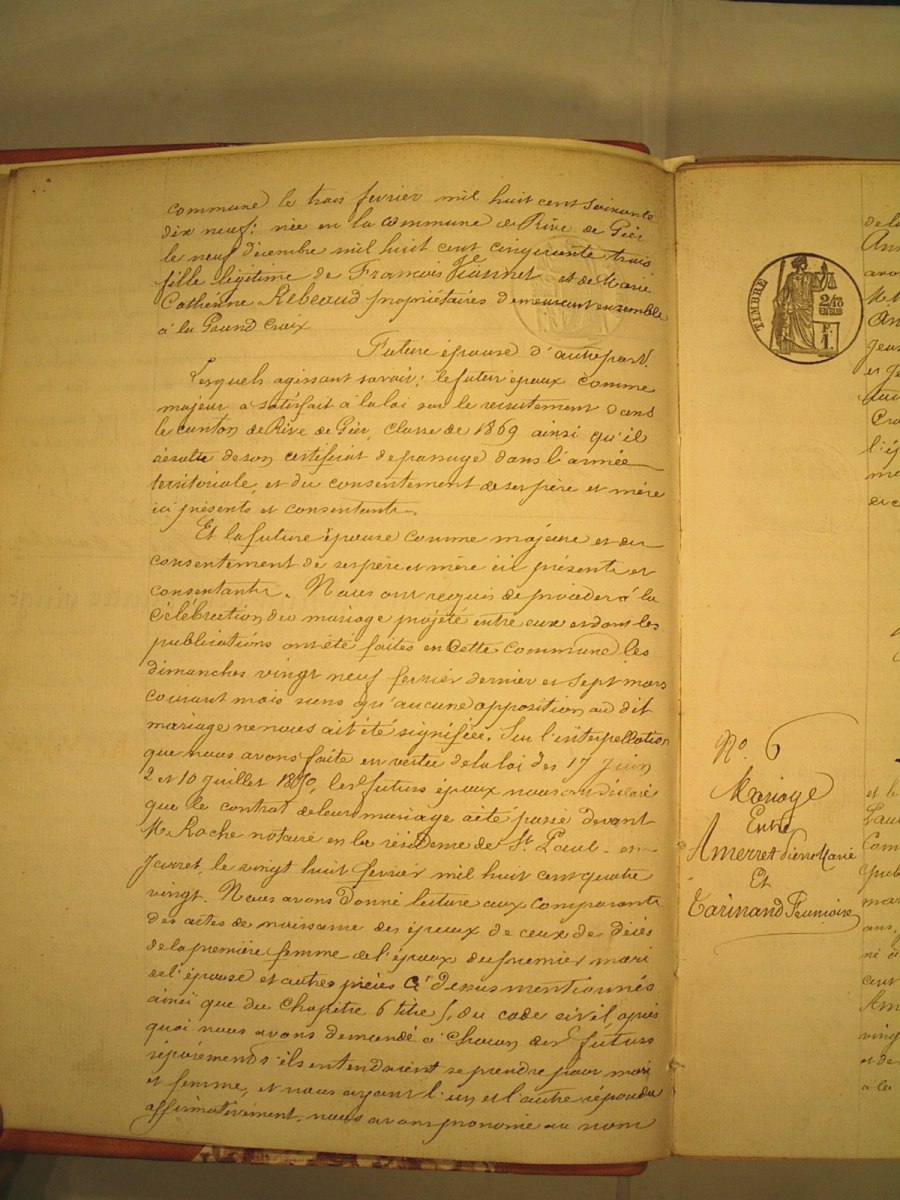 commune le trois fevrier mil huit cent soixante
dix neuf: née en la commune de Rive de Gier
le neuf décembre mil huit cent cinquante trois
fille légitime de François Jeannet et de Marie
Catherine Rebeaud propriétaires demeurant ensemble
à la Grand Croix
Future épouse d'autre part.
Lesquels agissant savoir; le futur époux comme
majeur a satisfait à la loi sur le recrutement dans
le canton de Rive de Gier, classe de 1869 ainsi qu'il
résulte de son certificat de passage dans l'armée
territoriale, et du consentement de ses père et mère
ici présents et consentants.
Et la future épouse comme majeure et du
consentement de ses père et mère ici présents et
consentants. Nous ont requis de procéder à la
célébration du mariage projeté entre eux et dont les
publications ont été faites en cette commune les
dimanches vingt neuf fevrier dernier et sept mars
courant mois sans qu'aucune opposition au dit
mariage ne nous ait été signifiée. Sur l'interpellation
que nous avons faite en vertu de la loi des 17 Juin
2 et 10 juillet 1850, les futurs époux nous ont déclaré
que le contrat de leur mariage a été passé devant
Me Roche notaire en la résidence de St Paul-en-
Jarret, le vingt huit fevrier mil huit cent quatre
vingt. Nous avons donné lecture aux comparants
des actes de naissance des époux de ceux de décès
de la première femme de l'époux du premier mari
de l'épouse et autres pièces ci dessus mentionnés
ainsi que du chapitre 6 titre 5, du code civil, après
quoi nous avons demandé à chacun des futurs
séparément s'ils entendaient se prendre pour mari
et femme, et nous ayant l'un et l'autre répondu
affirmativement, nous avons prononcé au nom
TIMBRE
2/10
EN SUS
F.
1.
No. 6
Mariage
Entre
Amerret Pierre Marie
Et
Tarinand Franoise
de la
avo
M. 
An
Jean
et
Cro
l'ép
me
et le
Paul
Com
publ
mar
ans,
né à
cent
Am
ving
et de
à la